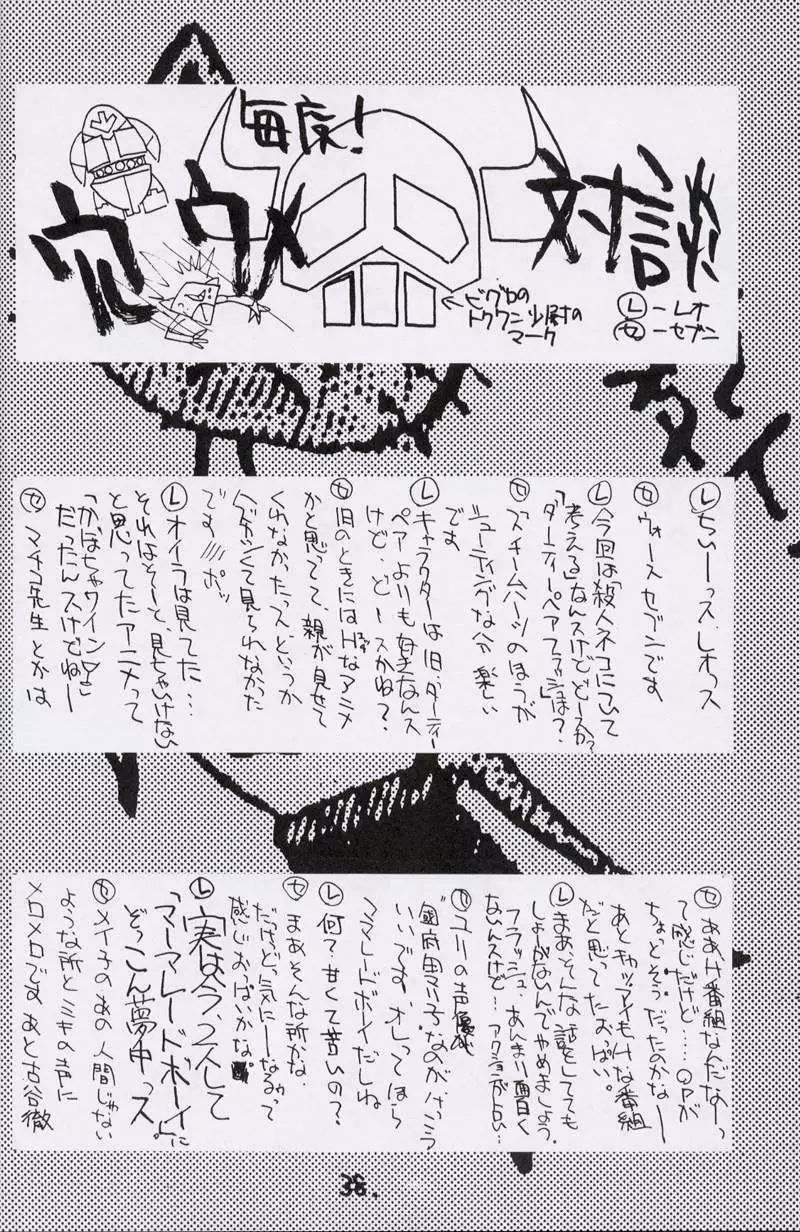 毎度!
穴ウメ対談
←ビグロの
トクワン少尉の
マーク
Ⓛ-レオ
㋝-セブン
Ⓛちぃーっス、レオっス
㋝ウォースセブンです
Ⓛ今回は「殺人ネコについて
考える」なんスけどどースか?
「ダーティーペアフラッシュは?」
㋝ズチームハーツのほうが
シューティングな分楽しい
です
Ⓛキャラクターは旧ダーティー
ペアよりも好きなんス
けど、どースかね?
㋝旧のときにはHなアニメ
かと思ってて、親が見せて
くれなかたっス、というか
ハズカシくて見られなかった
です///ポッ
Ⓛオイラは見てた…
それはそーと、見ちゃいけない
と思ってたアニメって
「かぼちゃワイン♡」
だったんスけどねー
㋝マチコ先生とかは
㋝ああH番組なんだなーっ
て感じだけど…。OPが
ちょっとそうだったのかなー
あとキャッツアイもHな番組
だと思ってた。おっぱい。
Ⓛまあ、そんな話をしてても
しょーがないんでやめましょう。
フラッシュ、あんまり面白く
ないんスけど…アクションが占い…
㋝ユリの声優が
"國府田マリ子"なのがけっこう
いいです、オレってほら
ママレードボイだしね
Ⓛ何?甘くて苦いの?
㋝まあそんな所かな、
だけど気にーなるゥって
感じおっぱいかな。
Ⓛ実は今、2人して
「マーマレードボーイ」に
ぞっこん夢中っス
㋝メイ子のあの人間じゃない
ような所とミキの声に
メロメロです。あと古谷徹
38.